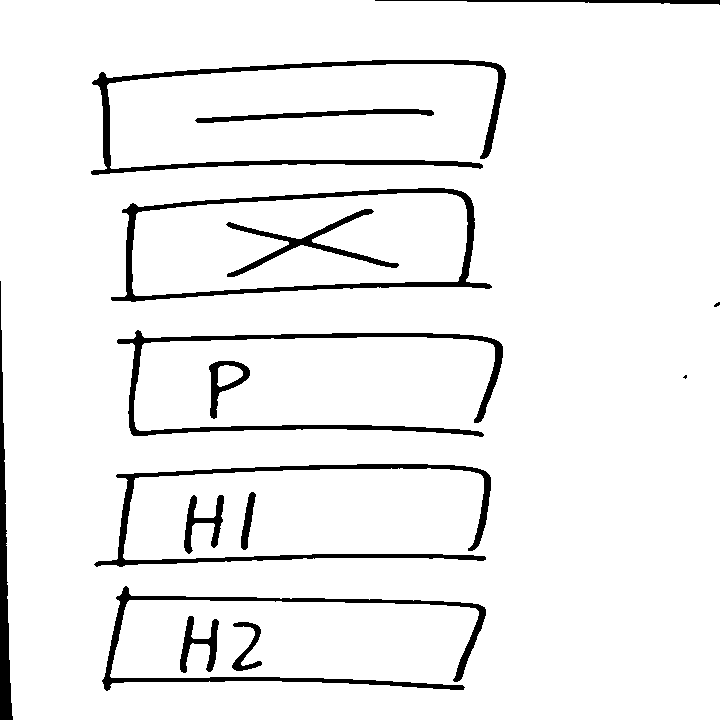 P
H1
H2